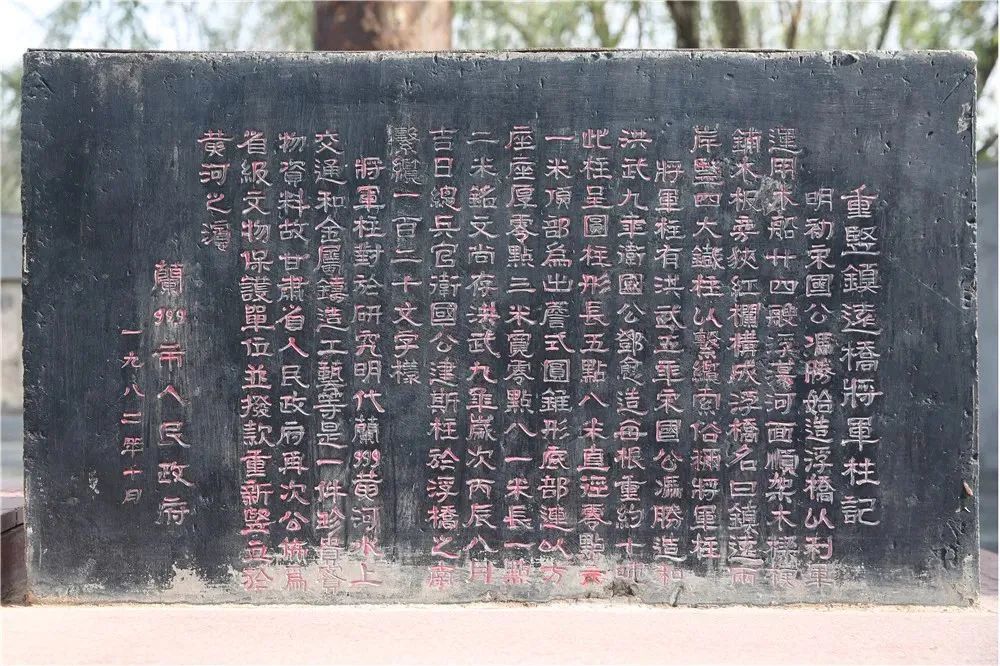 重豎鎮遠橋將軍柱記
明初宋國公馮勝始造浮橋以利軍
運用木船廿四艘浮河面順架木樑複
鋪木板旁挾紅欄構成浮橋名曰鎮遠兩
岸豎四大鐵柱以繫纜索俗稱將軍柱
將軍柱有洪武五年宋國公馮勝造和
洪武九年衛國公鄧愈造每根重約十噸
此柱呈圓柱形長五點八米直逕零點六
一米頂部為出簷式圓錐形底部連以方
座座厚零點三米寬零點八一米長一點
二米銘文尚存洪武九年歲次丙辰八月
吉日總兵官衛國公建斯柱於浮橋之南
繫纜一百二十文字樣
將軍柱對於研究明代蘭州黃河水上
交通和金屬鑄造工藝等是一件珍貴實
物資料故甘肅省人民政府再次公佈為
省級文物保護單位並撥款重新豎立於
黃河之濱
蘭州市人民政府
一九八二年十月